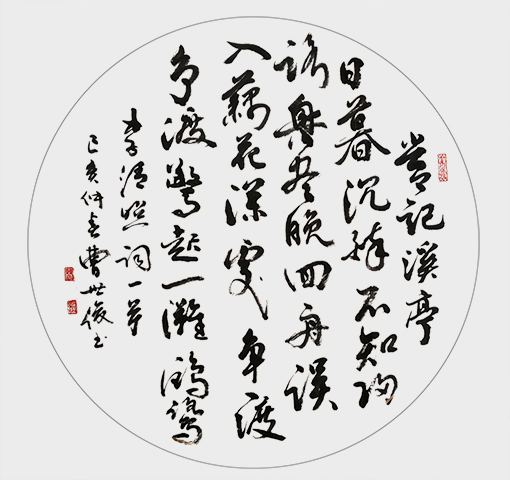 尝记溪亭
日暮沉醉不知归
路興尽晚回舟误
入藕花深處争渡
争渡驚起一灘鸥鹭
李清照词一首
己亥仲春曹世俊书